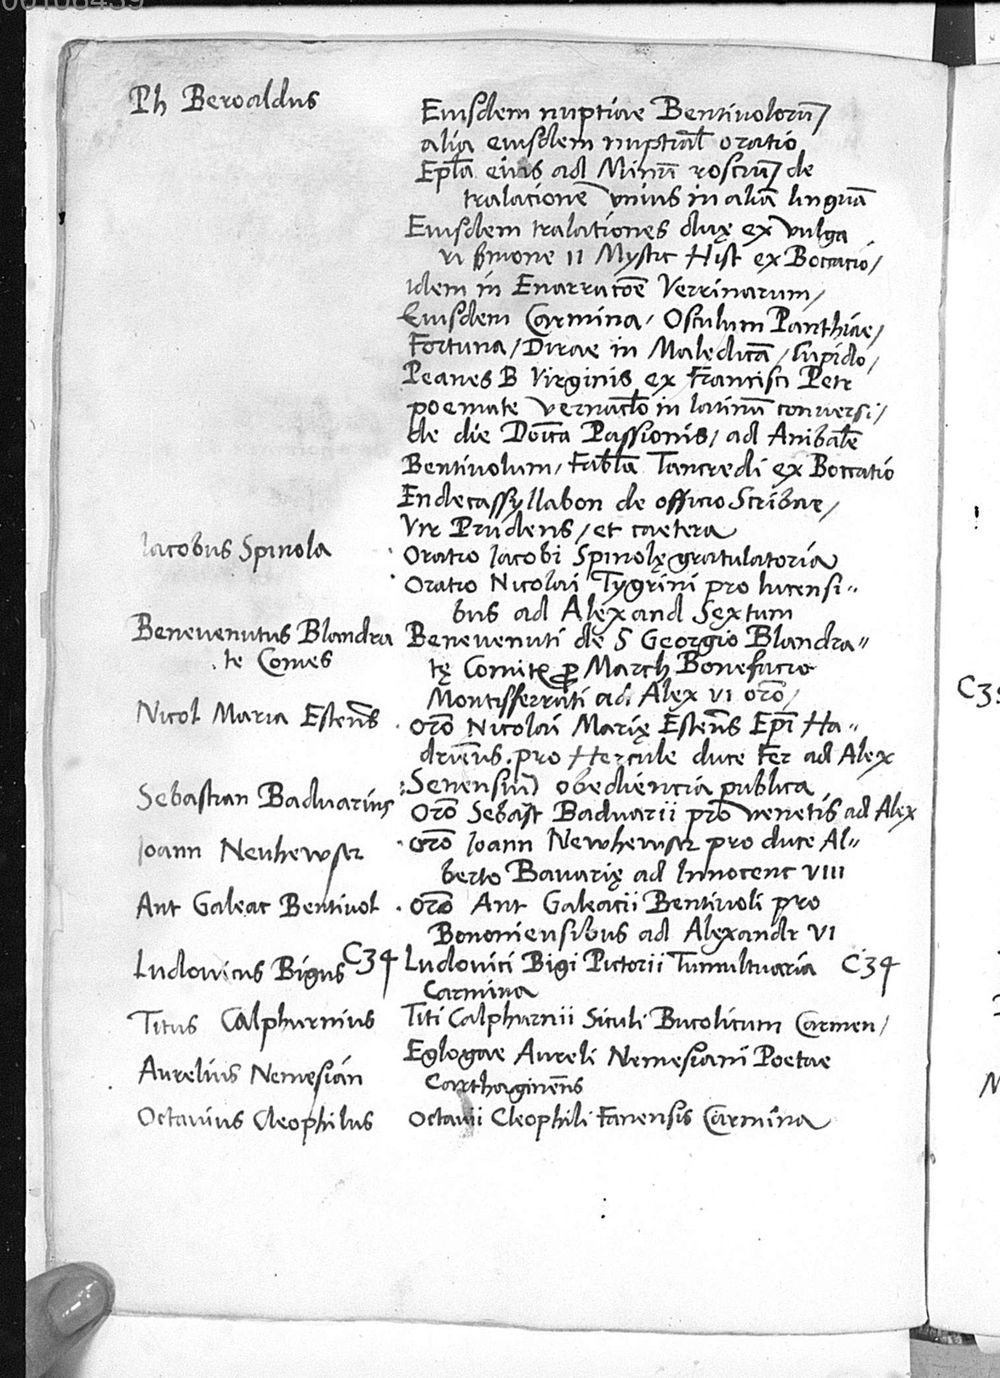 00108439
Ph Beroaldus
Eiusdem nuptiae Bentiuolorū/
alia eiusdem nuptial oratio
Epla eius ad Minū rosciū/ de
tralacione vnius in aliā linguā
Eiusdem tralationes duę ex vulga
ri s̄mone 11 Mystic Hist ex Boccacio/
idem in Enarracōe Verrinarum/
Eiusdem Carmina/ Osculum Panthiae/
Fortuna/ Dirae in Maledicā/ Cupido/
Peanes B Virginis ex Francisci Petr
poemate vernaclo in latinū conuersi/
de die Doīca Passionis/ ad Anibale
Bentiuolum/ Fabla Tancredi ex Boccatio
Endecassyllabon de officio Scribae/
Vir Prudens/ et caetera
Iacobus Spinola
Oratio Iacobi Spinolę gratulatoria
Oratio Nicolai Tygrini pro lucensi-
bus ad Alexand Sextum
Beneuenutus Blandra
te Comes
Beneuenuti de S Georgio Blandra-
tę Comit ꝓ March Bonefacio
Montisferrati ad Alex VI orō/
Nicol Maria Estens̄
orō Nicolai Marię Estens̄ Ep̄i Ha-
driens̄. pro Hercule duce Fer ad Alex
Senensiū obediencia publica
Sebastian Baduarius
Orō Sebast Baduarii pro venetis ad Alex
Ioann Neuhewser
orō Ioann Newhewser pro duce Al-
berto Bauarię ad Innocent VIII
Ant Galeac Bentiuol
orō Ant Galeacii Bentiuoli pro
Bononiensibus ad Alexandr VI
Ludouicus Bigus C34
Ludouici Bigi Pictorii Tumultuaria C34
Carmina
Titus Calphurnius
Titi Calphurnii Siculi Bucolicum Carmen/
Aurelius Nemesian
Eglogae Aureli Nemesiani Poetae
Carthaginens̄
Octauius Cleophilus
Octauii Cleophili Fanensis Carmina